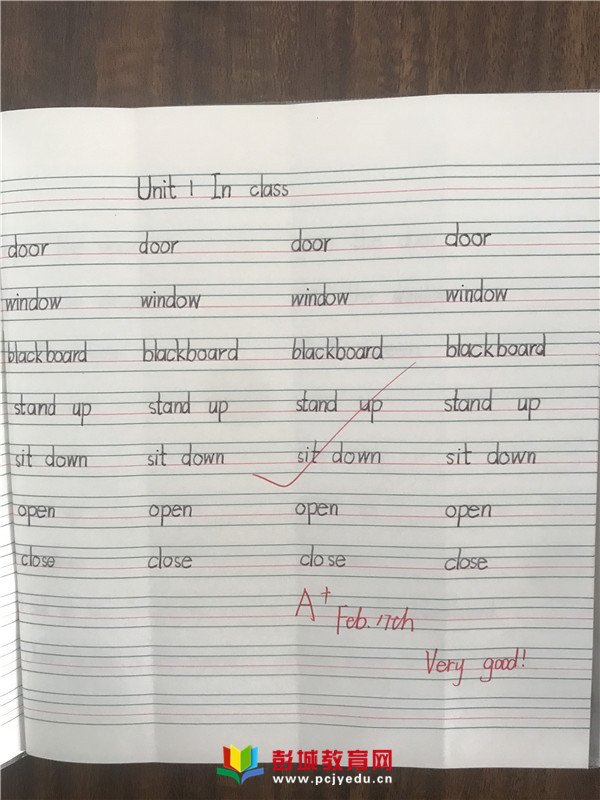 Unit 1 In class
door door door door
window window window window
blackboard blackboard blackboard blackboard
stand up stand up stand up stand up
sit down sit down sit down sit down
open open open open
close close close close
A+
Feb. 17th
Very good!
彭城教育网
www.pcjyedu.cn